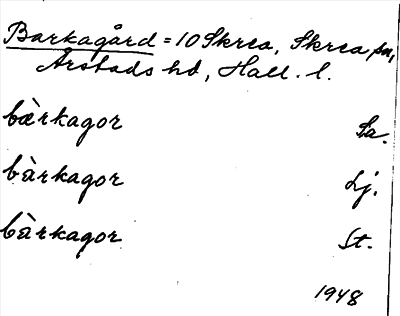 Barkagård = 10 Skrea, Skrea sn,
Årstads hd, Hall. l.
bærkagor Sa.
bàrkagor Lj.
bàrkagor St.
1948